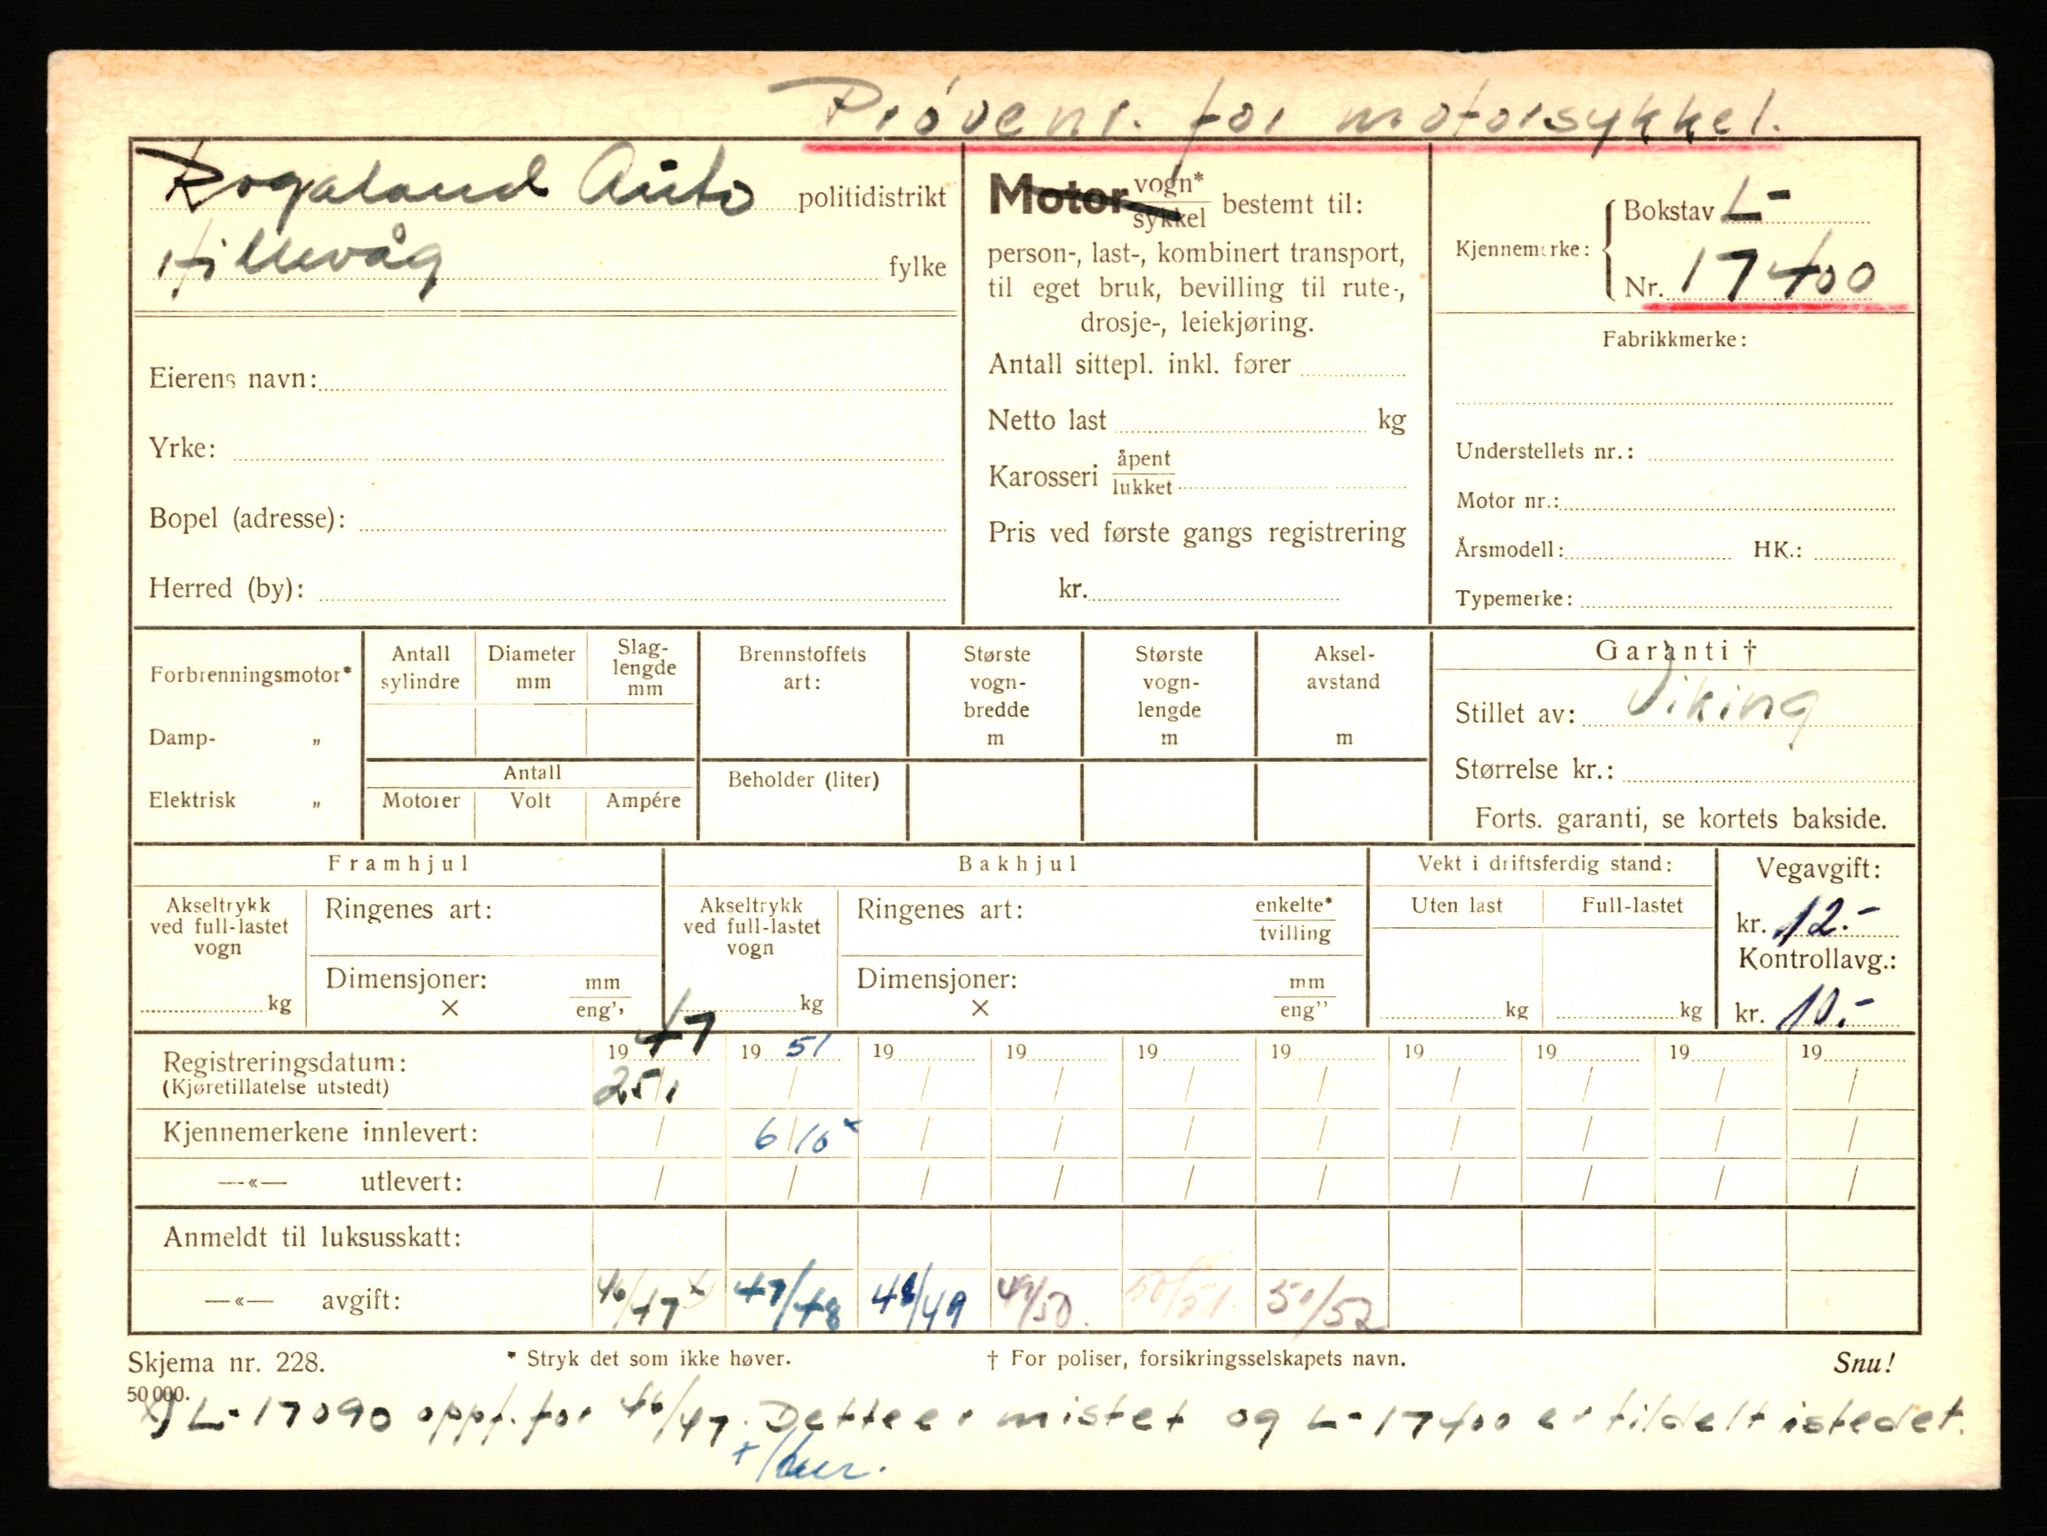 Prøvenr. for motorsykkel.
Rogaland Auto politidistrikt
Hillevåg fylke
Eierens navn:
Yrke:
Bopel (adresse):
Herred (by):
Motor vogn* sykkel bestemt til:
person-, last-, kombinert transport,
til eget bruk, bevilling til rute-,
drosje-, leiekjøring.
Antall sittepl. inkl. fører
Netto last kg
Karosseri åpent lukket
Pris ved første gangs registrering
kr.
Kjennemerke: Bokstav L-
Nr. 17400
Fabrikkmerke:
Understellets nr.:
Motor nr.:
Årsmodell: HK.:
Typemerke:
Forbrenningsmotor*
Damp- „
Elektrisk „
Antall sylindre
Diameter mm
Slag-lengde mm
Antall
Motorer Volt Ampére
Brennstoffets art:
Beholder (liter)
Største vogn-bredde m
Største vogn-lengde m
Aksel-avstand m
Garanti †
Stillet av: Viking
Størrelse kr.:
Forts. garanti, se kortets bakside.
Framhjul
Akseltrykk ved full-lastet vogn
kg
Ringenes art:
Dimensjoner: mm
× eng''
Bakhjul
Akseltrykk ved full-lastet vogn
kg
Ringenes art: enkelte* tvilling
Dimensjoner: mm
× eng''
Vekt i driftsferdig stand:
Uten last Full-lastet
kg kg
Vegavgift:
kr. 12.-
Kontrollavg.:
kr. 10.-
Registreringsdatum: 19 47 19 51 19 19 19 19 19 19 19 19
(Kjøretillatelse utstedt) 25/1 / / / / / / / / /
Kjennemerkene innlevert: / 6/10 x / / / / / / / /
—«— utlevert: / / / / / / / / / /
Anmeldt til luksusskatt:
—«— avgift: 46/47 x 47/48 48/49 49/50. 50/51. 51/52
Skjema nr. 228. * Stryk det som ikke høver. † For poliser, forsikringsselskapets navn. Snu!
50 000.
x) L-17090 oppt. for 46/47. Dette er mistet og L-17400 er tildelt istedet.